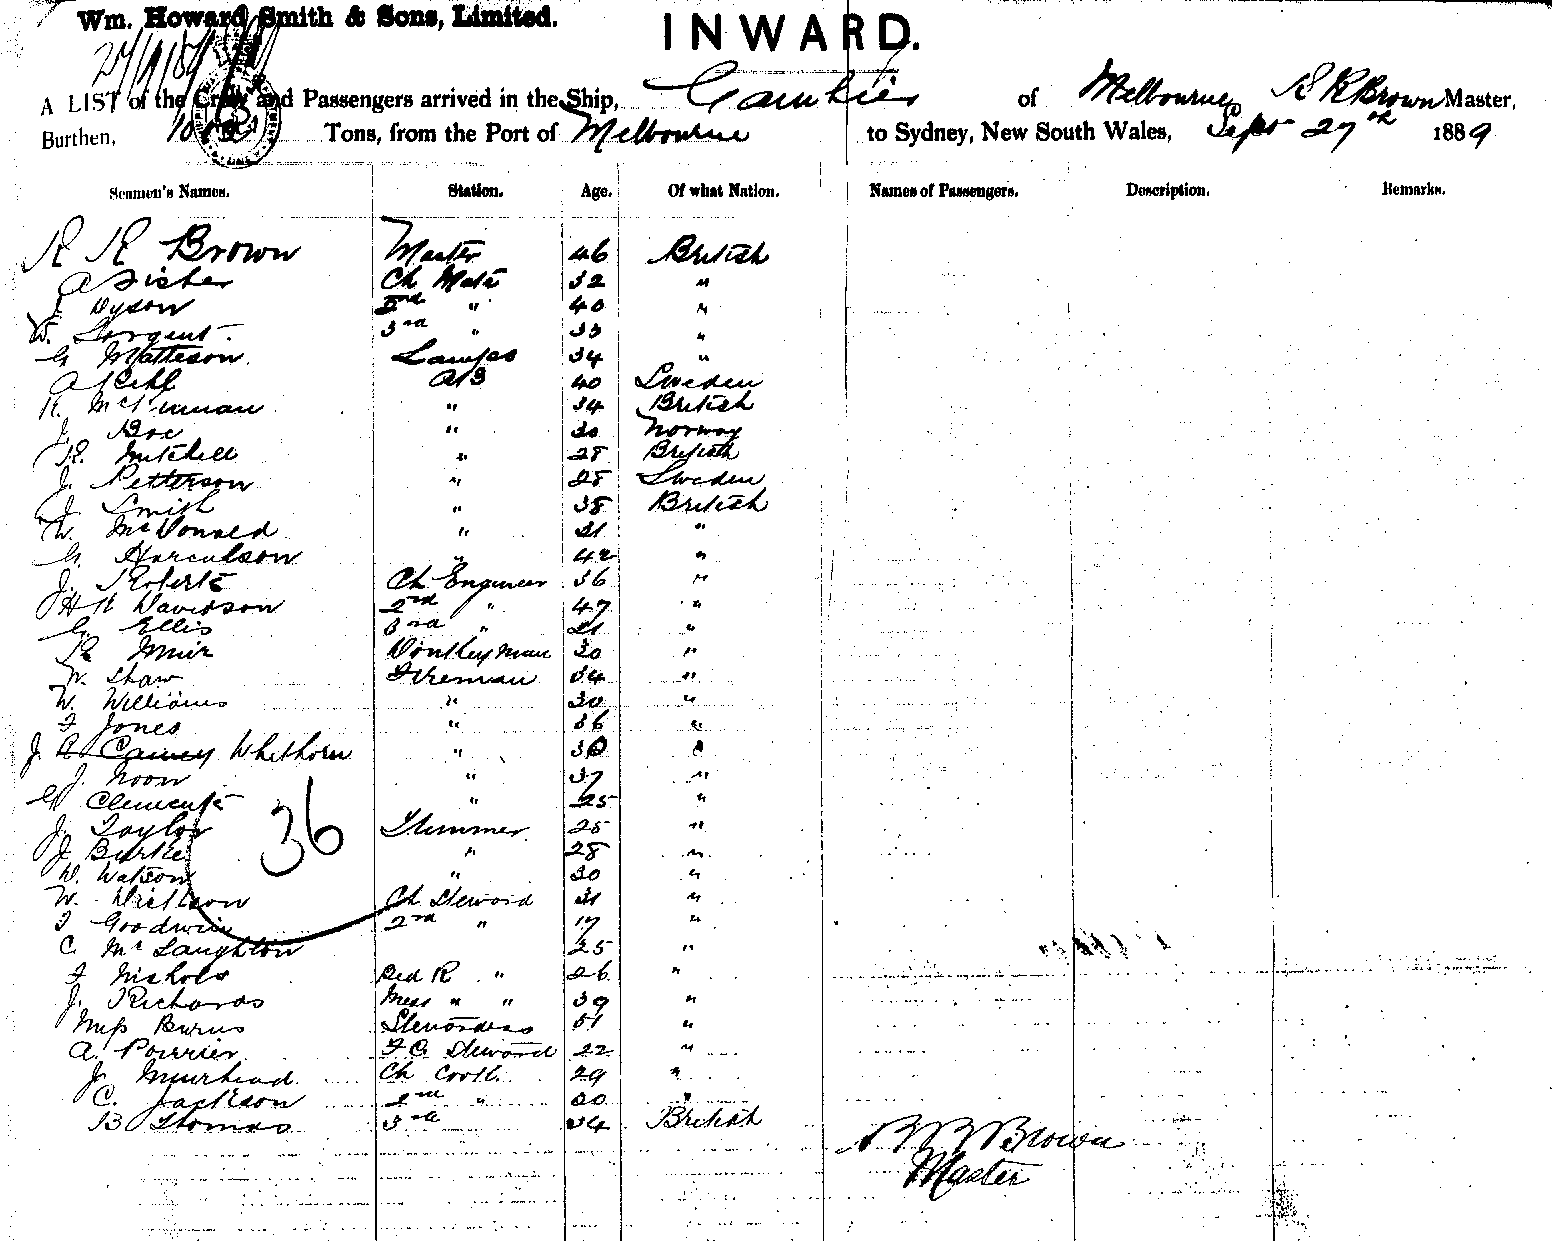 Wm. Howard Smith & Sons, Limited.
INWARD.
27/9/89
A LIST of the Crew and Passengers arrived in the Ship, Gambier of Melbourne, R R Brown Master,
Burthen, Tons, from the Port of Melbourne to Sydney, New South Wales, Sept 27th 1889
Seamen's Names. Station. Age. Of what Nation. Names of Passengers. Description. Remarks.
R R Brown Master 46 British
A Fisher Ch Mate 32 "
Dyson 2nd " 40 "
W. Sargent. 3rd " 33 "
G Matteson Lamps 34 "
A AB 40 Sweden
R. " 34 British
J. Boe " 30 Norway
R. Mitchell " 28 British
J. Petterson " 28 Sweden
J. Smith " 38 British
W. McDonald " 31 "
G. Harculson " 42 "
J. Roberts Ch Engineer 36 "
H R Davidson 2nd " 47 "
G. Ellis 3rd " 21 "
R Muir Donkeyman 30 "
W. Shaw Fireman 34 "
W. Williams " 30 "
F Jones " 36 "
J. Whithorn " 30 "
J. Noon " 37 "
G Clements " 25 "
J. Taylor Trimmer 25 "
36
J. Burke " 28 "
W. Watson " 30 "
W. Ch Steward 31 "
F Goodwin 2nd " 17 "
C. McLaughton 25 "
F Nichols Bed R " 26 "
J. Richards Mess " " 39 "
Miss Burns Stewardess 51 "
A. Pourrier F C Steward 22 "
J. Muirhead Ch Cook 29 "
C. Jackson 2nd " 30 "
B Thomas 3rd 34 British
R R Brown
Master